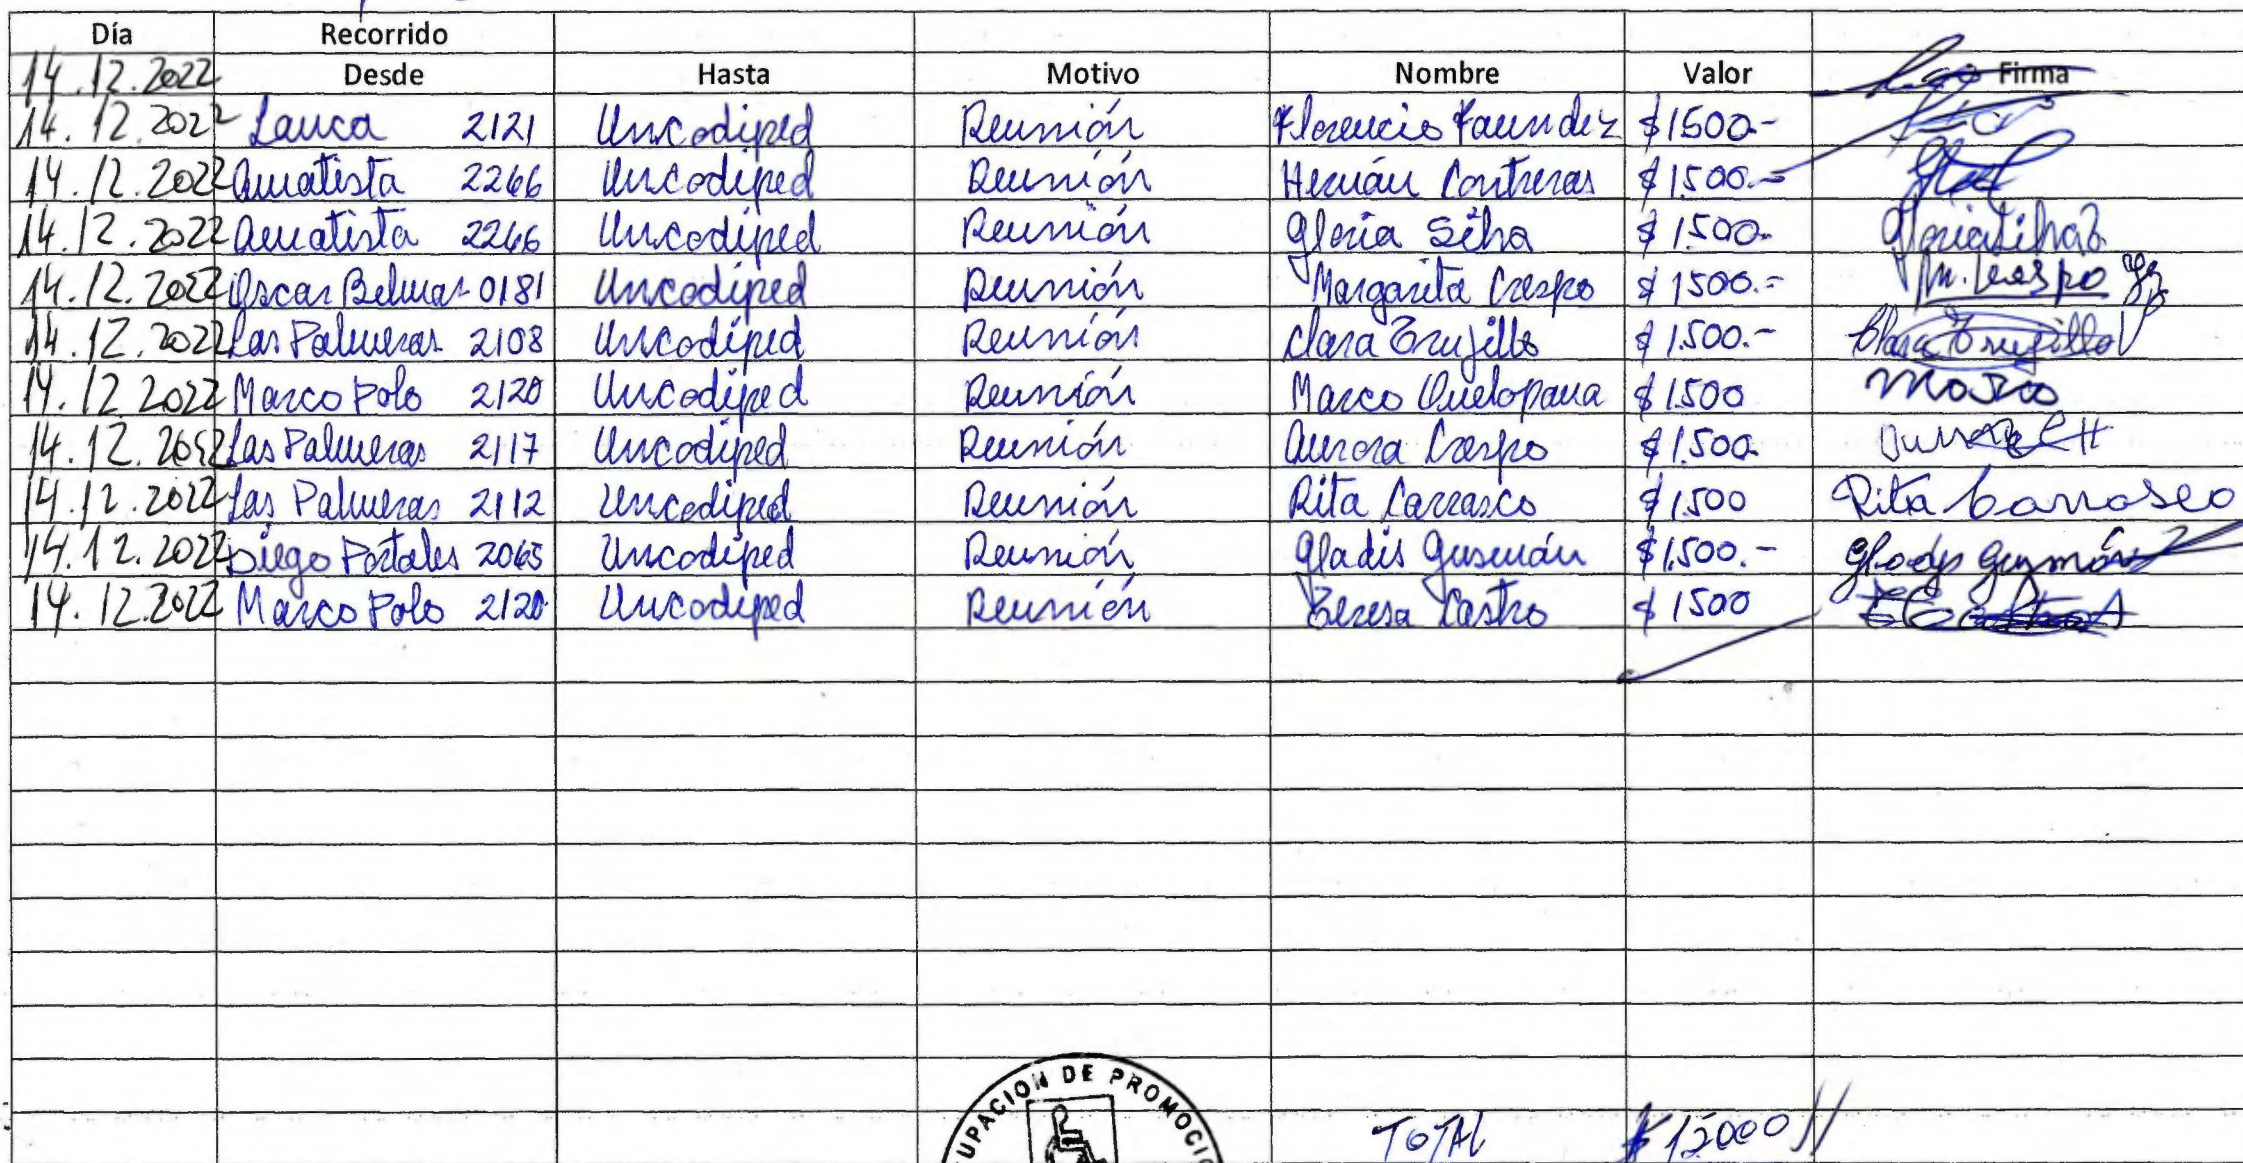 Día Recorrido
14.12.2022 Desde Hasta Motivo Nombre Valor Firma
14.12.2022 Lauca 2121 Uncodiped Reunión Florencio Faundez $1500.-
14.12.2022 Amatista 2266 Uncodiped Reunión Hernán Contreras $1.500.-
14.12.2022 Amatista 2266 Uncodiped Reunión Gloria Silva $1.500.-
14.12.2022 Oscar Belmar 0181 Uncodiped Reunión Margarita Crespo $1500.- M. Crespo
14.12.2022 Las Palmeras 2108 Uncodiped Reunión Clara Trujillo $1.500.- Clara Trujillo V
14.12.2022 Marco Polo 2120 Uncodiped Reunión Marco Quelopana $1.500 Marco
14.12.2022 Las Palmeras 2117 Uncodiped Reunión Aurora Crespo $1.500
14.12.2022 Las Palmeras 2112 Uncodiped Reunión Rita Carrasco $1.500 Rita Carrasco
14.12.2022 Diego Portales 2065 Uncodiped Reunión Gladis Gusmán $1.500.- Gladys Guzmán
14.12.2022 Marco Polo 2120 Uncodiped Reunión Teresa Castro $1500
UPACION DE PROMOCI
TOTAL $15000//